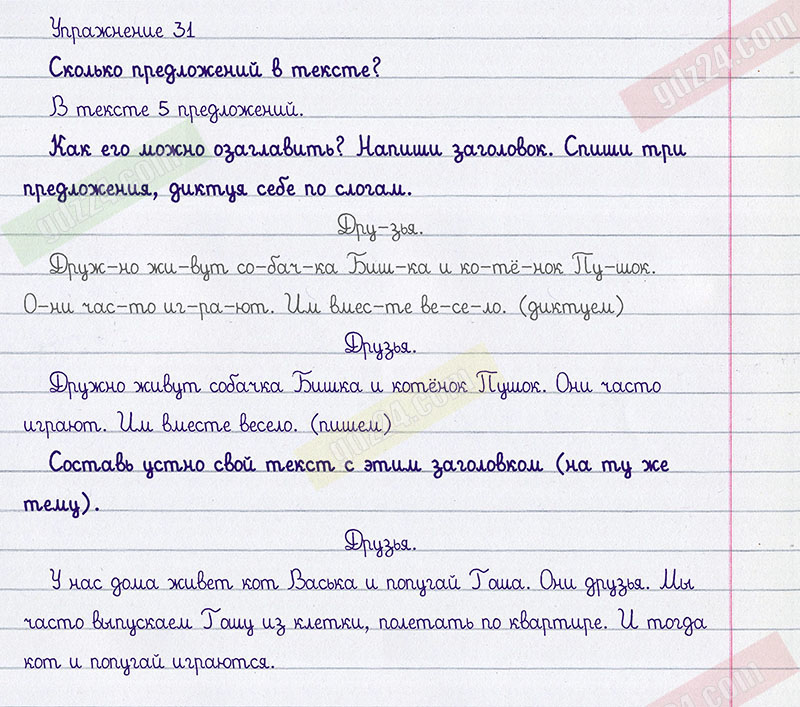 Упражнение 31
gdz24.com
Сколько предложений в тексте?
В тексте 5 предложений.
Как его можно озаглавить? Напиши заголовок. Спиши три
предложения, диктуя себе по слогам.
gdz24.com
Дру-зья.
Друж-но жи-вут со-бач-ка Биш-ка и ко-тё-нок Пу-шок.
О-ни час-то иг-ра-ют. Им вмес-те ве-се-ло. (диктуем)
Друзья.
Дружно живут собачка Бишка и котёнок Пушок. Они часто
играют. Им вместе весело. (пишем)
gdz24.com
Составь устно свой текст с этим заголовком (на ту же
тему).
Друзья.
У нас дома живет кот Васька и попугай Гоша. Они друзья. Мы
часто выпускаем Гошу из клетки, полетать по квартире. И тогда
кот и попугай играются.
gdz24.com